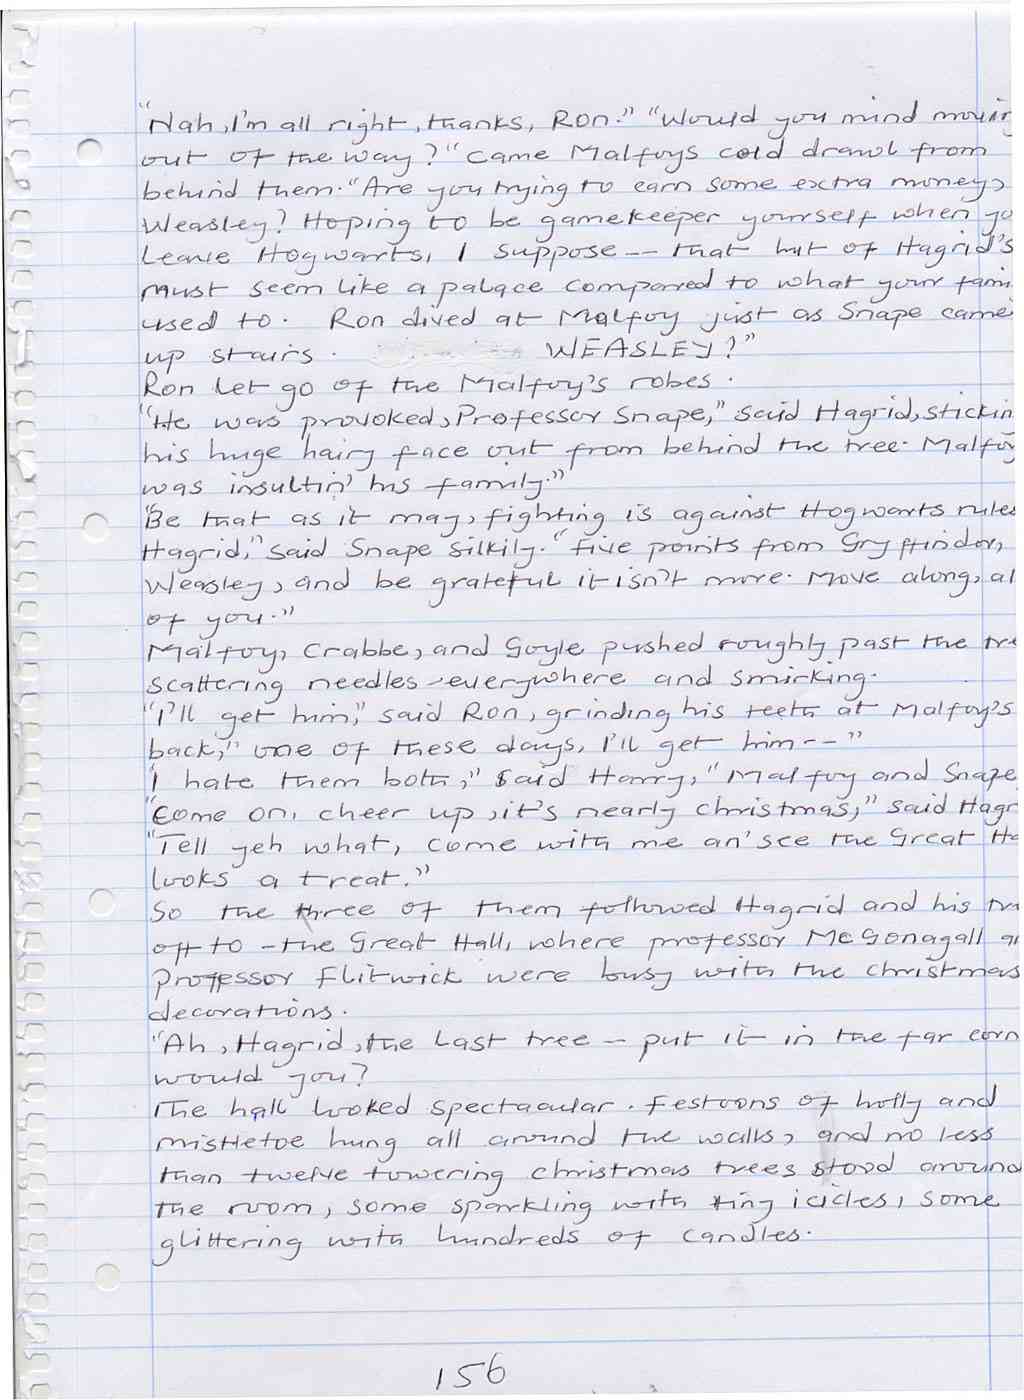 "Nah, I'm all right, thanks, Ron." "Would you mind moving
out of the way?" came Malfoys cold drawl from
behind them. "Are you trying to earn some extra money,
Weasley? Hoping to be gamekeeper yourself when yo
leave Hogwarts, I suppose -- that hut of Hagrid's
must seem like a palace compared to what your fami
used to. Ron dived at Malfoy just as Snape came
up stairs. WEASLEY?"
Ron let go of the Malfoy's robes.
"He was provoked, Professor Snape," said Hagrid, stickin
his huge hairy face out from behind the tree. Malfoy
was insultin' his family."
"Be that as it may, fighting is against Hogwarts rules
Hagrid," said Snape silkily. "Five points from Gryffindor,
Weasley, and be grateful it isn't more. Move along, al
of you."
Malfoy, Crabbe, and Goyle pushed roughly past the tre
scattering needles everywhere and smirking.
"I'll get him," said Ron, grinding his teeth at Malfoy's
back," one of these days, I'll get him --"
I hate them both," said Harry, "Malfoy and Snape
"Come on, cheer up, it's nearly christmas," said Hagr
"Tell yeh what, come with me an' see the Great Ha
looks a treat."
So the three of them followed Hagrid and his tr
off to -the Great Hall, where professor McGonagall a
Professor Flitwick were busy with the christmas
decorations.
"Ah, Hagrid, the last tree - put it in the far corn
would you?
The hall looked spectacular. Festoons of holly and
mistletoe hung all around the walls, and no less
than twelve towering christmas trees stood around
the room, some sparkling with tiny icicles, some
glittering with hundreds of candles.
156